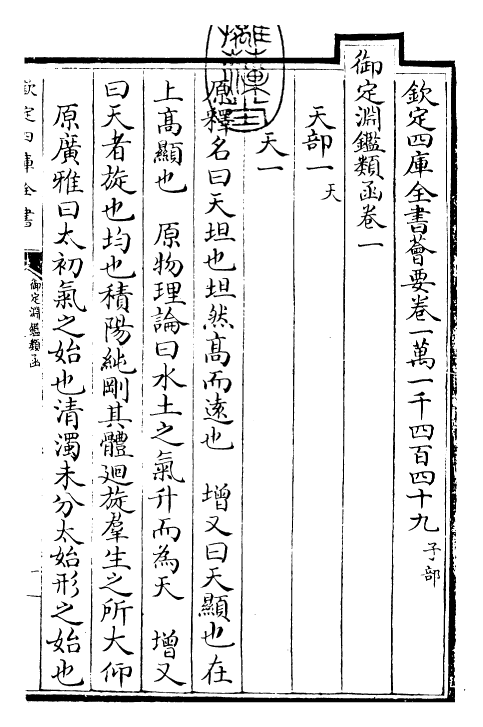 欽定四庫全書薈要卷一萬一千四百四十九 子部
御定淵鑑類函卷一
天部一 天
天一
原釋名曰天坦也坦然髙而遠也 增又曰天顯也在
上髙顯也 原物理論曰水土之氣升而為天 增又
曰天者旋也均也積陽純剛其體廻旋羣生之所大仰
原廣雅曰太初氣之始也清濁未分太始形之始也
欽定四庫全書
御定淵鑑類函
一